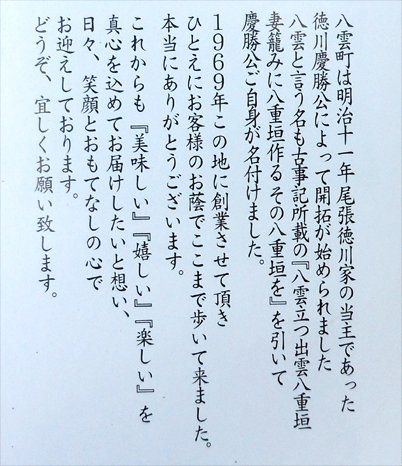 八雲町は明治十一年 尾張徳川家の当主であった
徳川慶勝公によって開拓が始められました
八雲と言う名も古事記所載の『八雲立つ出雲八重垣
妻籠みに八重垣作る その八重垣を』を引いて
慶勝公ご自身が名付けました。
1969年この地に創業させて頂き
ひとえにお客様のお蔭でここまで歩いて来ました。
本当にありがとうございます。
これからも『美味しい』『嬉しい』『楽しい』を
真心を込めてお届けしたいと想い、
日々、笑顔とおもてなしの心で
お迎えしております。
どうぞ、宜しくお願い致します。